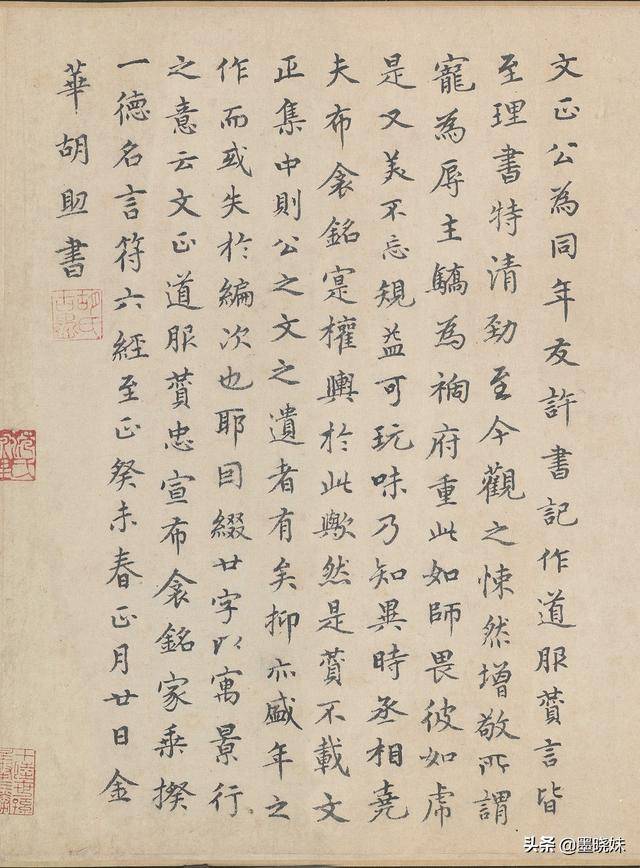 文正公為同年友許書記作道服賛言皆
至理書特清勁至今觀之悚然增敬所謂
寵為辱主驕為禍府重此如師畏彼如虎
是又美不忘規益可玩味乃知異時丞相堯
夫布衾銘寔權輿於此歟然是賛不載文
正集中則公之文之遺者有矣抑亦盛年之
作而或失於編次也耶因綴廿字以寓景行
之意云文正道服賛忠宣布衾銘家乗揆
一德名言符六經至正癸未春正月廿日金
華胡助書
头条 @墨晓妹